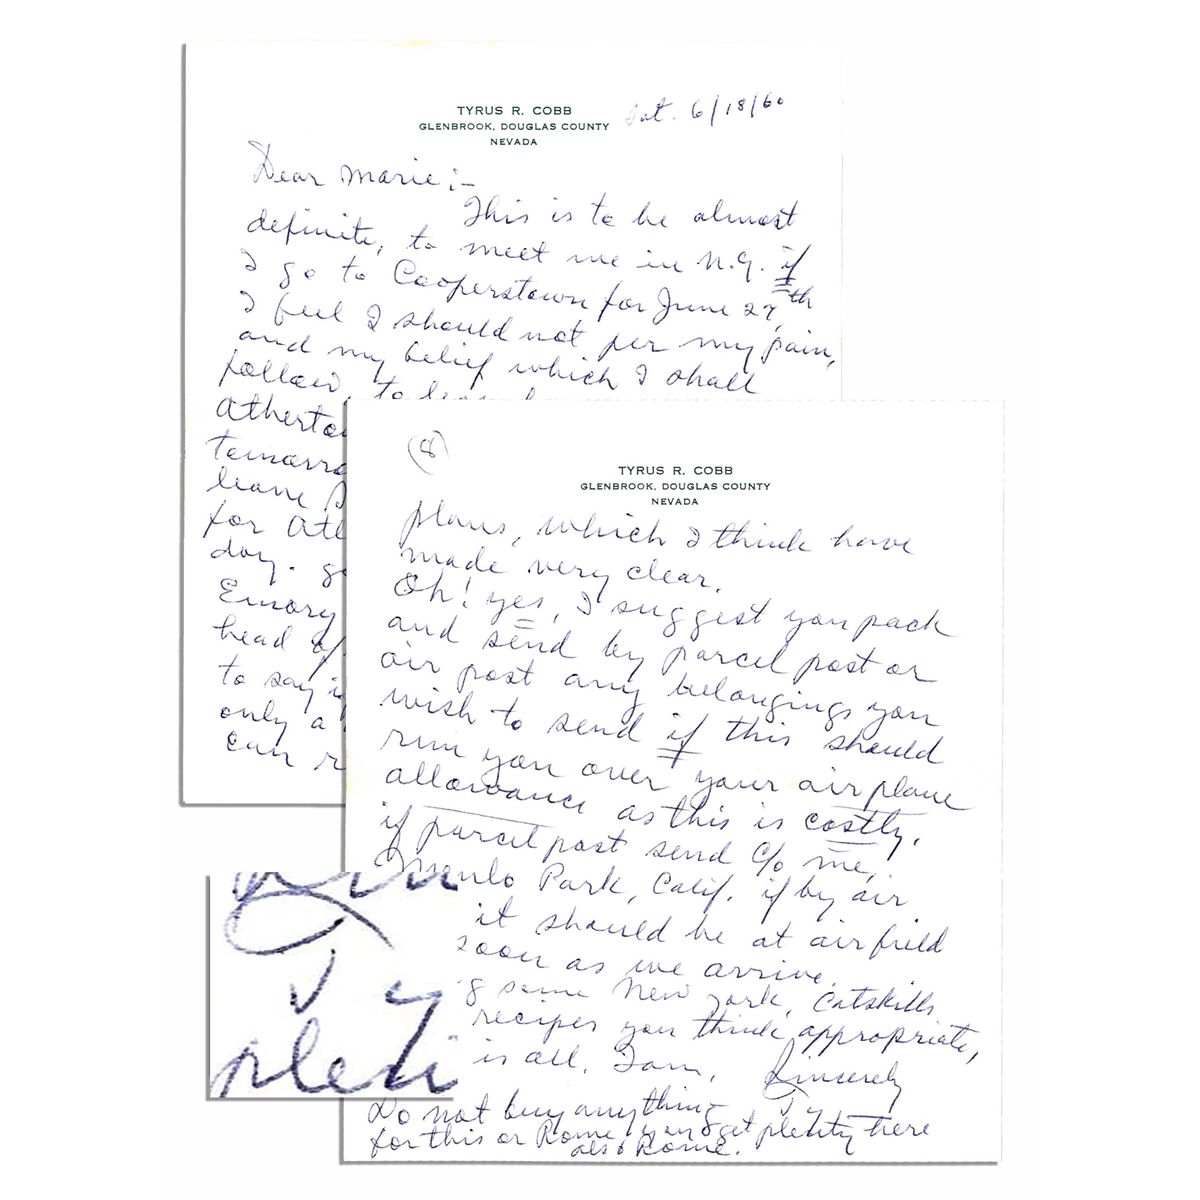 TYRUS R. COBB
GLENBROOK, DOUGLAS COUNTY
NEVADA
Sat. 6/18/60
Dear Marie:-
This is to be almost
definite, to meet me in N.Y. if
I go to Cooperstown for June 27,th
I feel I should not per my pain,
and my belief which I shall
follow, to
Atherto
tomorro
leave
for Ath
day.
Emory
head of
to say i
only a
can r
(8)
TYRUS R. COBB
GLENBROOK, DOUGLAS COUNTY
NEVADA
plans, which I think have
made very clear.
Oh! yes, I suggest you pack
and send by parcel post or
air post any belongings you
wish to send if this should
run you over your air plane
allowance as this is costly.
if parcel post send c/o me,
Menlo Park, Calif. if by air
it should be at air field
soon as we arrive.
& some New York, Catskills
recipes you think appropriate,
is all. I am, Sincerely
Ty
Do not buy anything
for this or Rome, you get plenty here
also Rome.
Ty
plen